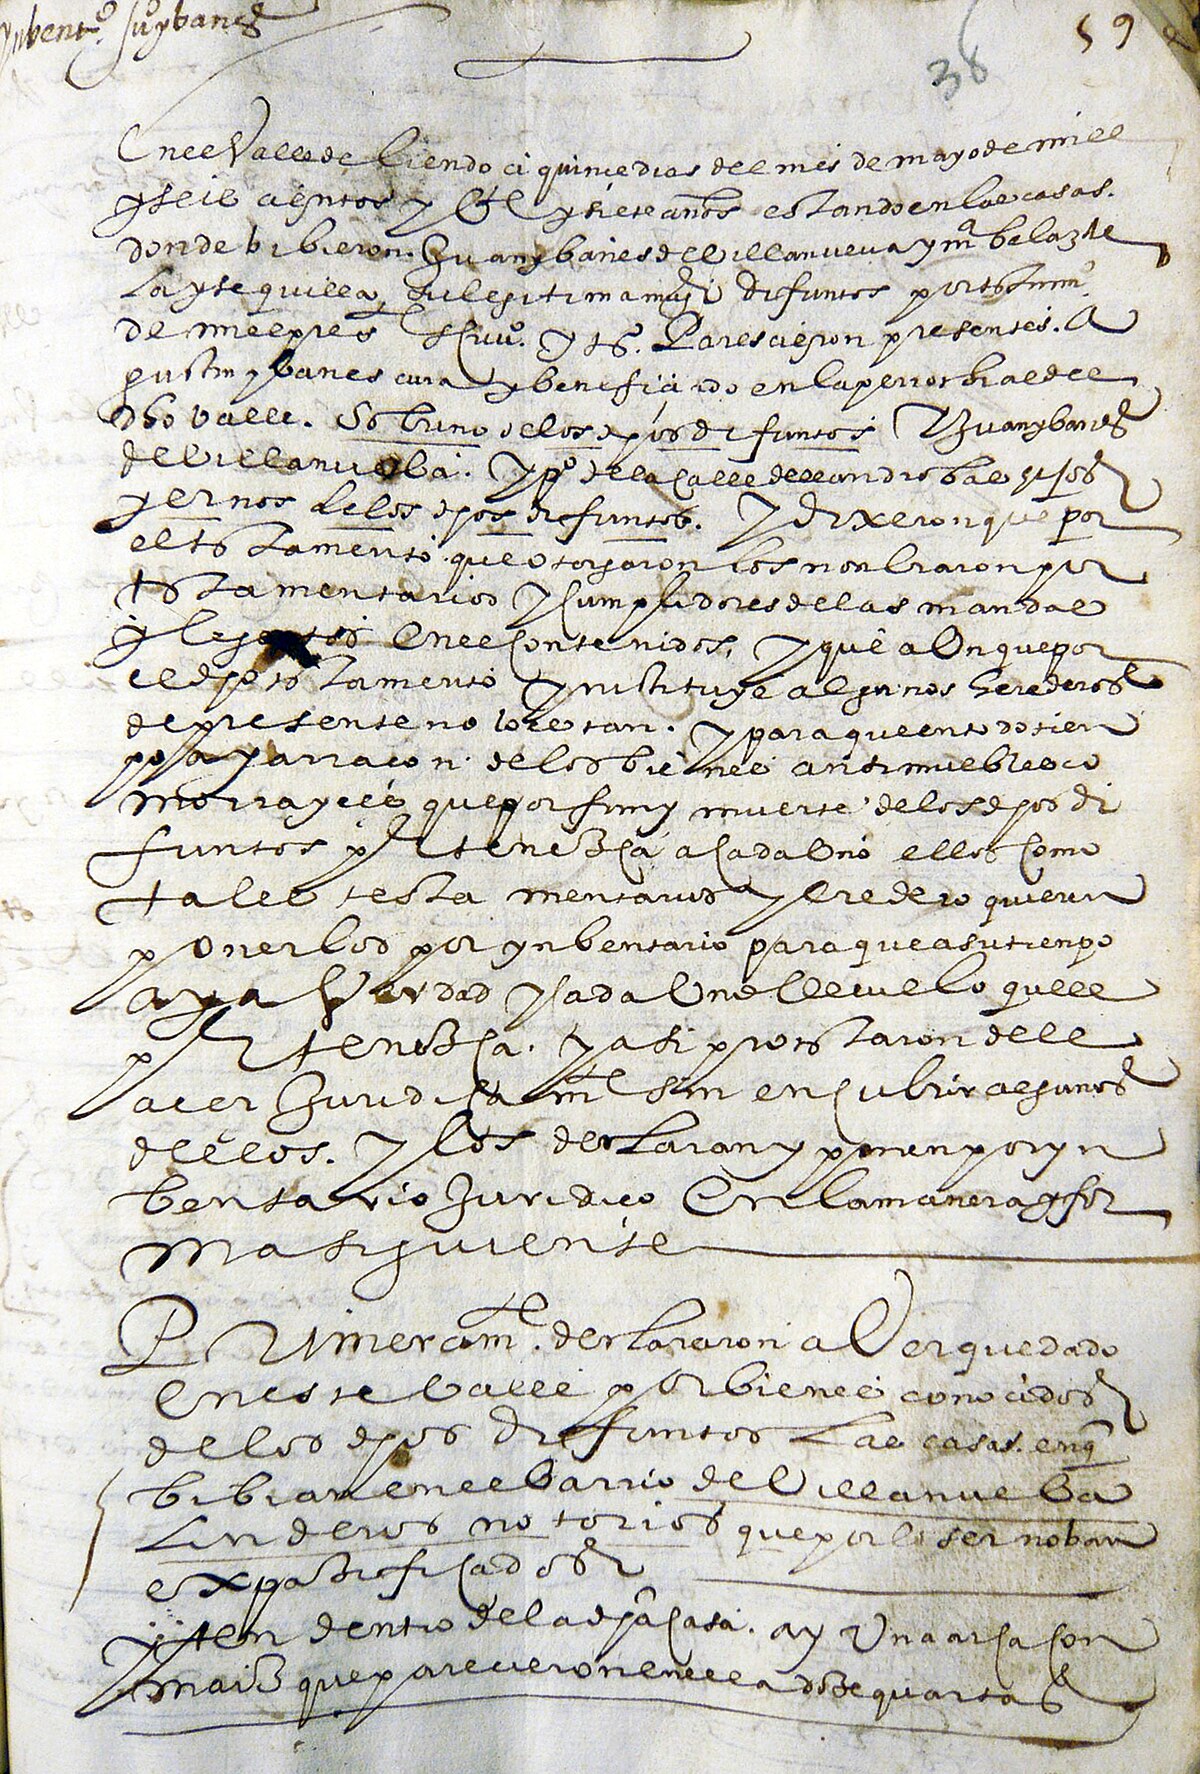 Ynbentº Juº ybanes
59
38
En el Valle de liendo a quince dias del mes de mayo de mill
y seis cientos y y siete años estando en las casas
donde bibieron Juan ybañes de Villanueva y mª belaz de
la ysequilla su legitima muger difuntos por testimº
de mi el pres escriuº y tsº Parescieron presentes A
gustin ybanes cura y beneficiado en la perrochial del
dho valle Sobrino de los dhos difuntos Juan ybanes
de Villanueba y pº de la Calle dellandrobal
yernos de los dhos difuntos y dixeron que por
el testamento que otorgaron los nonbraron por
testamentarios y Cumplidores de las mandas
y legatos en el Contenidos y que aUnque por
el dho testamento ynstituye algunos herederos
de presente no lo estan y para que en todo tien
po aya rraçon de los bienes ansi muebles co
mo rrayçes que por fin y muerte de los dhos di
funtos pertenezca a Cada Uno ellos Como
tales testamentarios y eredero quieren
ponerlos por ynbentario para que a su tienpo
aya Verdad y Cada Uno lleue lo que le
pertenezca y asi protestaron dele
açer Juridicamte sin enCubrir algunos
dellos y los declaran y ponen por yn
bentario Juridico En la manera y for
ma siguiente
Primeramte declararon aVer quedado
En este Valle por bienes conocidos
de los dhos difuntos Las casas en q
bibian en el barrio de Villanueba
Linderos notorios que por lo ser no ban
expaçificados
yten dentro de la dha Casa ay Una arca Con
maiz que parecieron en ella doze quartas